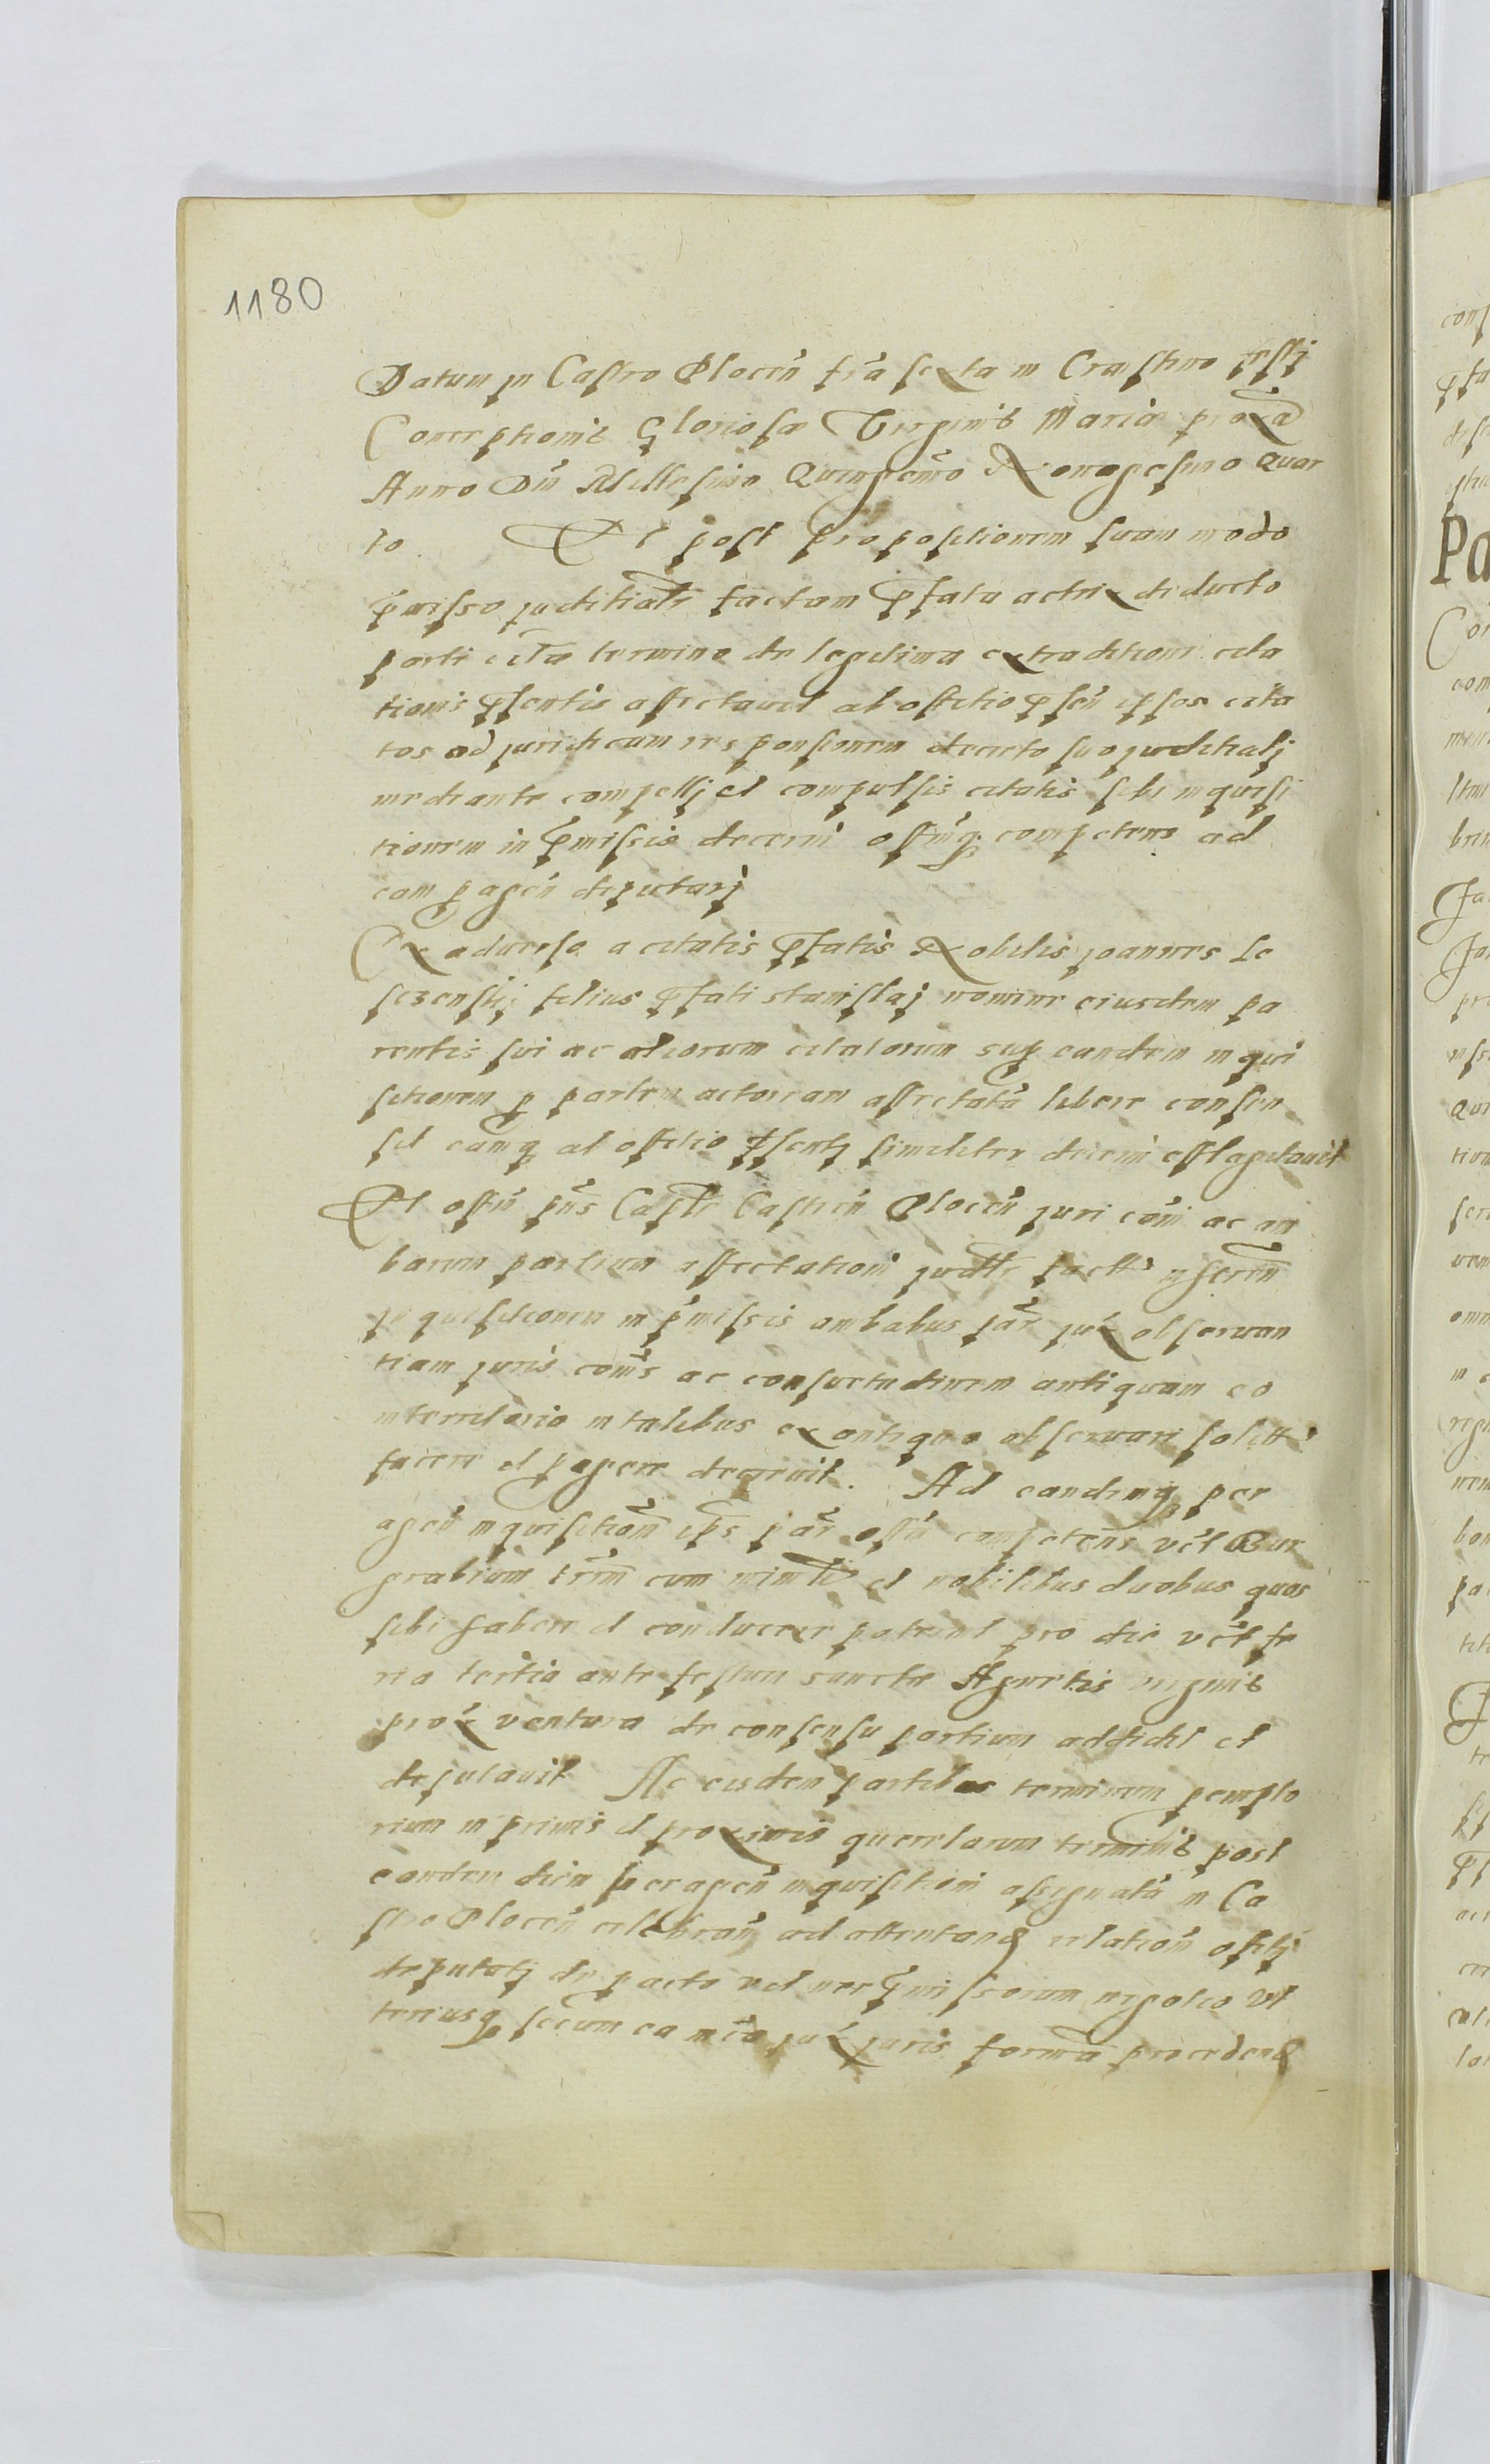 1180
Datum in Castro Plocen̄ fr̄a sexta in Crastino festj
Conceptionis Gloriosæ Virginis Mariæ prox̄a
Anno Dn̄i Millesimo Quingen̄mo Nonagesimo Quar
to. Et post propositionem suam modo
p̄misso juditialr̄ factam p̄fata actrix deducto
parti citatæ termino de legitima extraditione cita
tionis p̄sentis affectavit ab offitio p̄sen̄ ipsos cita
tos ad juridicam responsionem decreto suo juditialj
mediante compellj et compulsis citatis sibi inquisi
tionem in p̄missis decerni off̄mq; competens ad
eam p̱agen̄ deputarj
Ex adverso a citatis p̄fatis Nobilis joannes
filius p̄fati stanislaj nomine eiusdem pa
rentis sui ac aliorum citatorum sup̱ eandem inqui
sitionem p̱ partem actoream affectatā libere consen
sit eamq; ab offitio p̄sentj similiter decerni efflagitavit
Et offm̄ pn̄s Castr̄ Castren̄ Plocen̄ juri com̄i ac am
barum partium affectationi
inquisitionem in p̄missis ambabus par̄ jux̄ observan
tiam juris com̄s ac consuetudinem antiquam eo
in territorio in talibus ex antiquo observari
facere et p̱agere decrevit. Ad eandemq; per
agen̄ inquisition̄ ip̄s par̄ offm̄ competens vel Bur
grabium cum et nobilibus duobus quos
sibi habere et conducere poterint pro die vel̄ fe
ria tertia ante festum sanctæ Agnetis virginis
prox̄ ventura de consensu partium addidit et
deputavit Ac eisdem partibus terminum
rium in primis et proximis querelarum terminis post
eandem diem peragen̄ inquisitioni assignatā in Ca
stro Plocen̄ celebran̄ ad attentand relation̄ offitij
deputatj de pacto vel ne p̄missorum negotio ul
teriusq; secum ea in cā jux̄ juris formā procedend